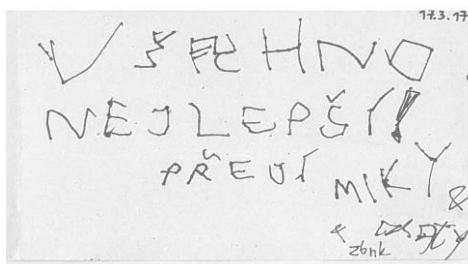 17.3.17
VŠECHNO
NEJLEPŠÍ!
PŘEJÍ MIKY &
&
zbnk